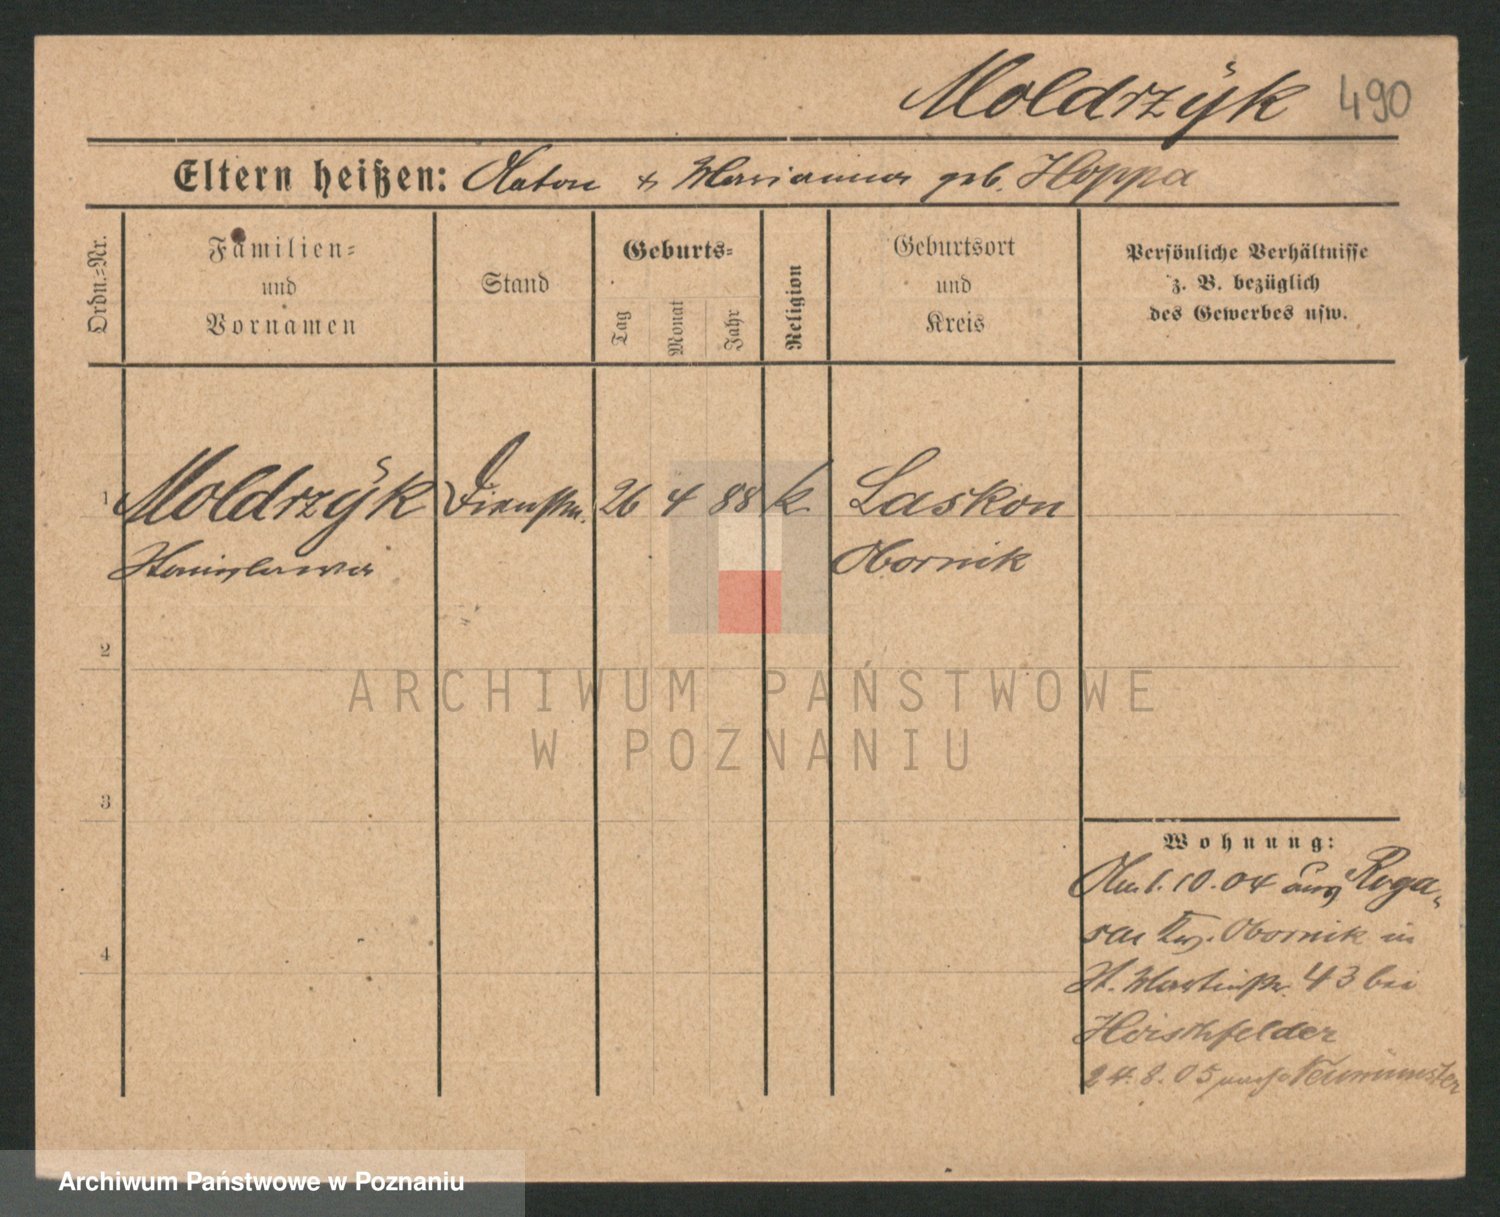 Moldrzÿk 490
Eltern heißen: Anton & Marianna geb. Hoppa
Ordn.=Nr.
Familien=
und
Vornamen
Stand
Geburts=
Tag
Monat
Jahr
Religion
Geburtsort
und
Kreis
Persönliche Verhältnisse
z. B. bezüglich
des Gewerbes usw.
1 Moldrzÿk Dienstm. 26 4 88 k Laskon
Stanislawa Obornik
2
ARCHIWUM PAŃSTWOWE
W POZNANIU
3
Wohnung:
Am 1.10.04 aus Roga-
sen Krs. Obornik in
St. Martinstr. 43 bei
Hirschfelder
24.8.05 nach Neumünster
4
Archiwum Państwowe w Poznaniu